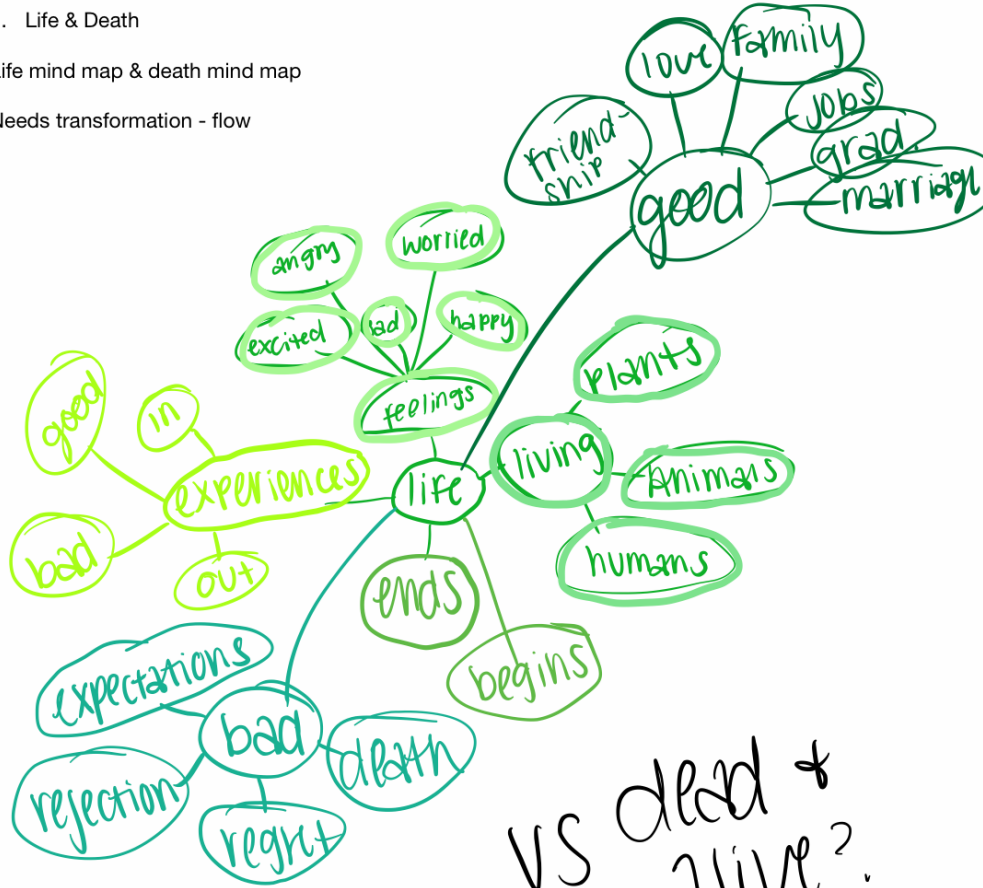 . Life & Death
ife mind map & death mind map
Needs transformation - flow
love
family
jobs
grad.
marriage
friend-
ship
good
worried
angry
sad
happy
excited
feelings
plants
living
animals
humans
good
in
experiences
bad
out
life
ends
begins
expectations
bad
death
rejection
regret
vs dead &
alive?